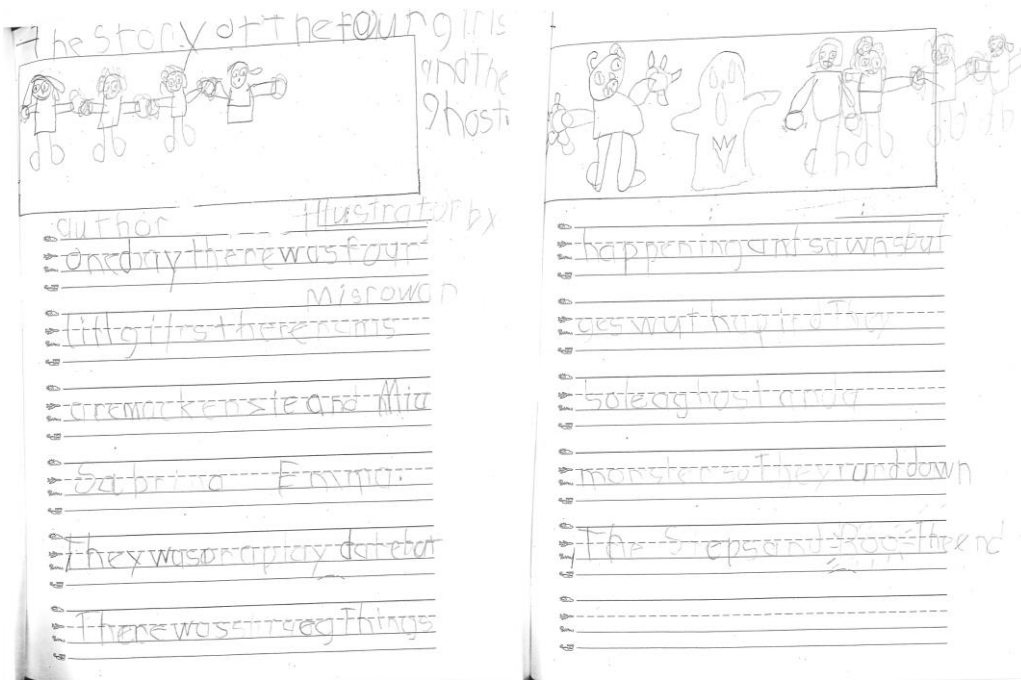 The story of The four girls
and the
ghost.
author illustratur by
one day there was four
Misrowan
littl girls there nams
are mackenzie and Mia
Sabrina Emma.
They was on a play date but
There was straeg Things
happening
ges wut hapind They
sole a ghost and a
monster so They rand down
The Steps and The end